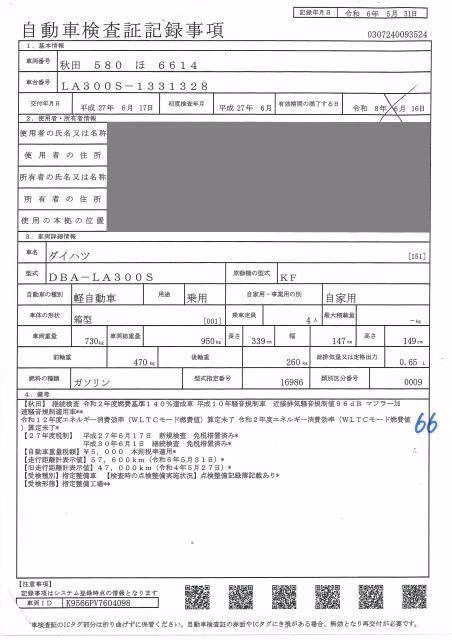 記録年月日 令和 6年 5月 31日
自動車検査証記録事項
0307240093524
1.基本情報
車両番号 秋田 580 ほ 6614
車台番号 LA300S-1331328
交付年月日 平成 27年 6月 17日 初度検査年月 平成 27年 6月 有効期間の満了する日 令和 8年 6月 16日
2.使用者・所有者情報
使用者の氏名又は名称
使用者の住所
所有者の氏名又は名称
所有者の住所
使用の本拠の位置
3.車両詳細情報
車名 ダイハツ [151]
型式 DBA-LA300S 原動機の型式 KF
自動車の種別 軽自動車 用途 乗用 自家用・事業用の別 自家用
車体の形状 箱型 [001] 乗車定員 4人 最大積載量 -kg
車両重量 730kg 車両総重量 950kg 長さ 339cm 幅 147cm 高さ 149cm
前軸重 470kg 後軸重 260kg 総排気量又は定格出力 0.65 L
燃料の種類 ガソリン 型式指定番号 16986 類別区分番号 0009
4.備考
【秋田】 継続検査 令和2年度燃費基準140%達成車 平成10年騒音規制車 近接排気騒音規制値96dB マフラー加
速騒音規制適用車**
令和12年度エネルギー消費効率(WLTCモード燃費値)算定未了 令和2年度エネルギー消費効率(WLTCモード燃費値
)算定未了*
【27年度税制】 平成27年6月17日 新規検査 免税措置済み*
平成30年6月1日 継続検査 免税措置済み*
【自動車重量税額】¥5,000 本則税率適用*
【走行距離計表示値】57,600km(令和6年5月31日)*
【旧走行距離計表示値】47,000km(令和4年5月27日)*
【受検種別】指定整備車 【検査時の点検整備実施状況】点検整備記録簿記載あり*
【受検形態】指定整備工場**
66
【注意事項】
記載事項はシステム登録時点の情報となります
車両ID K9566PV7604098
車検査証のICタグ部分は折り曲げずに保管ください。自動車検査証の券面やICタグにき損がある場合、無効となり再交付が必要です。